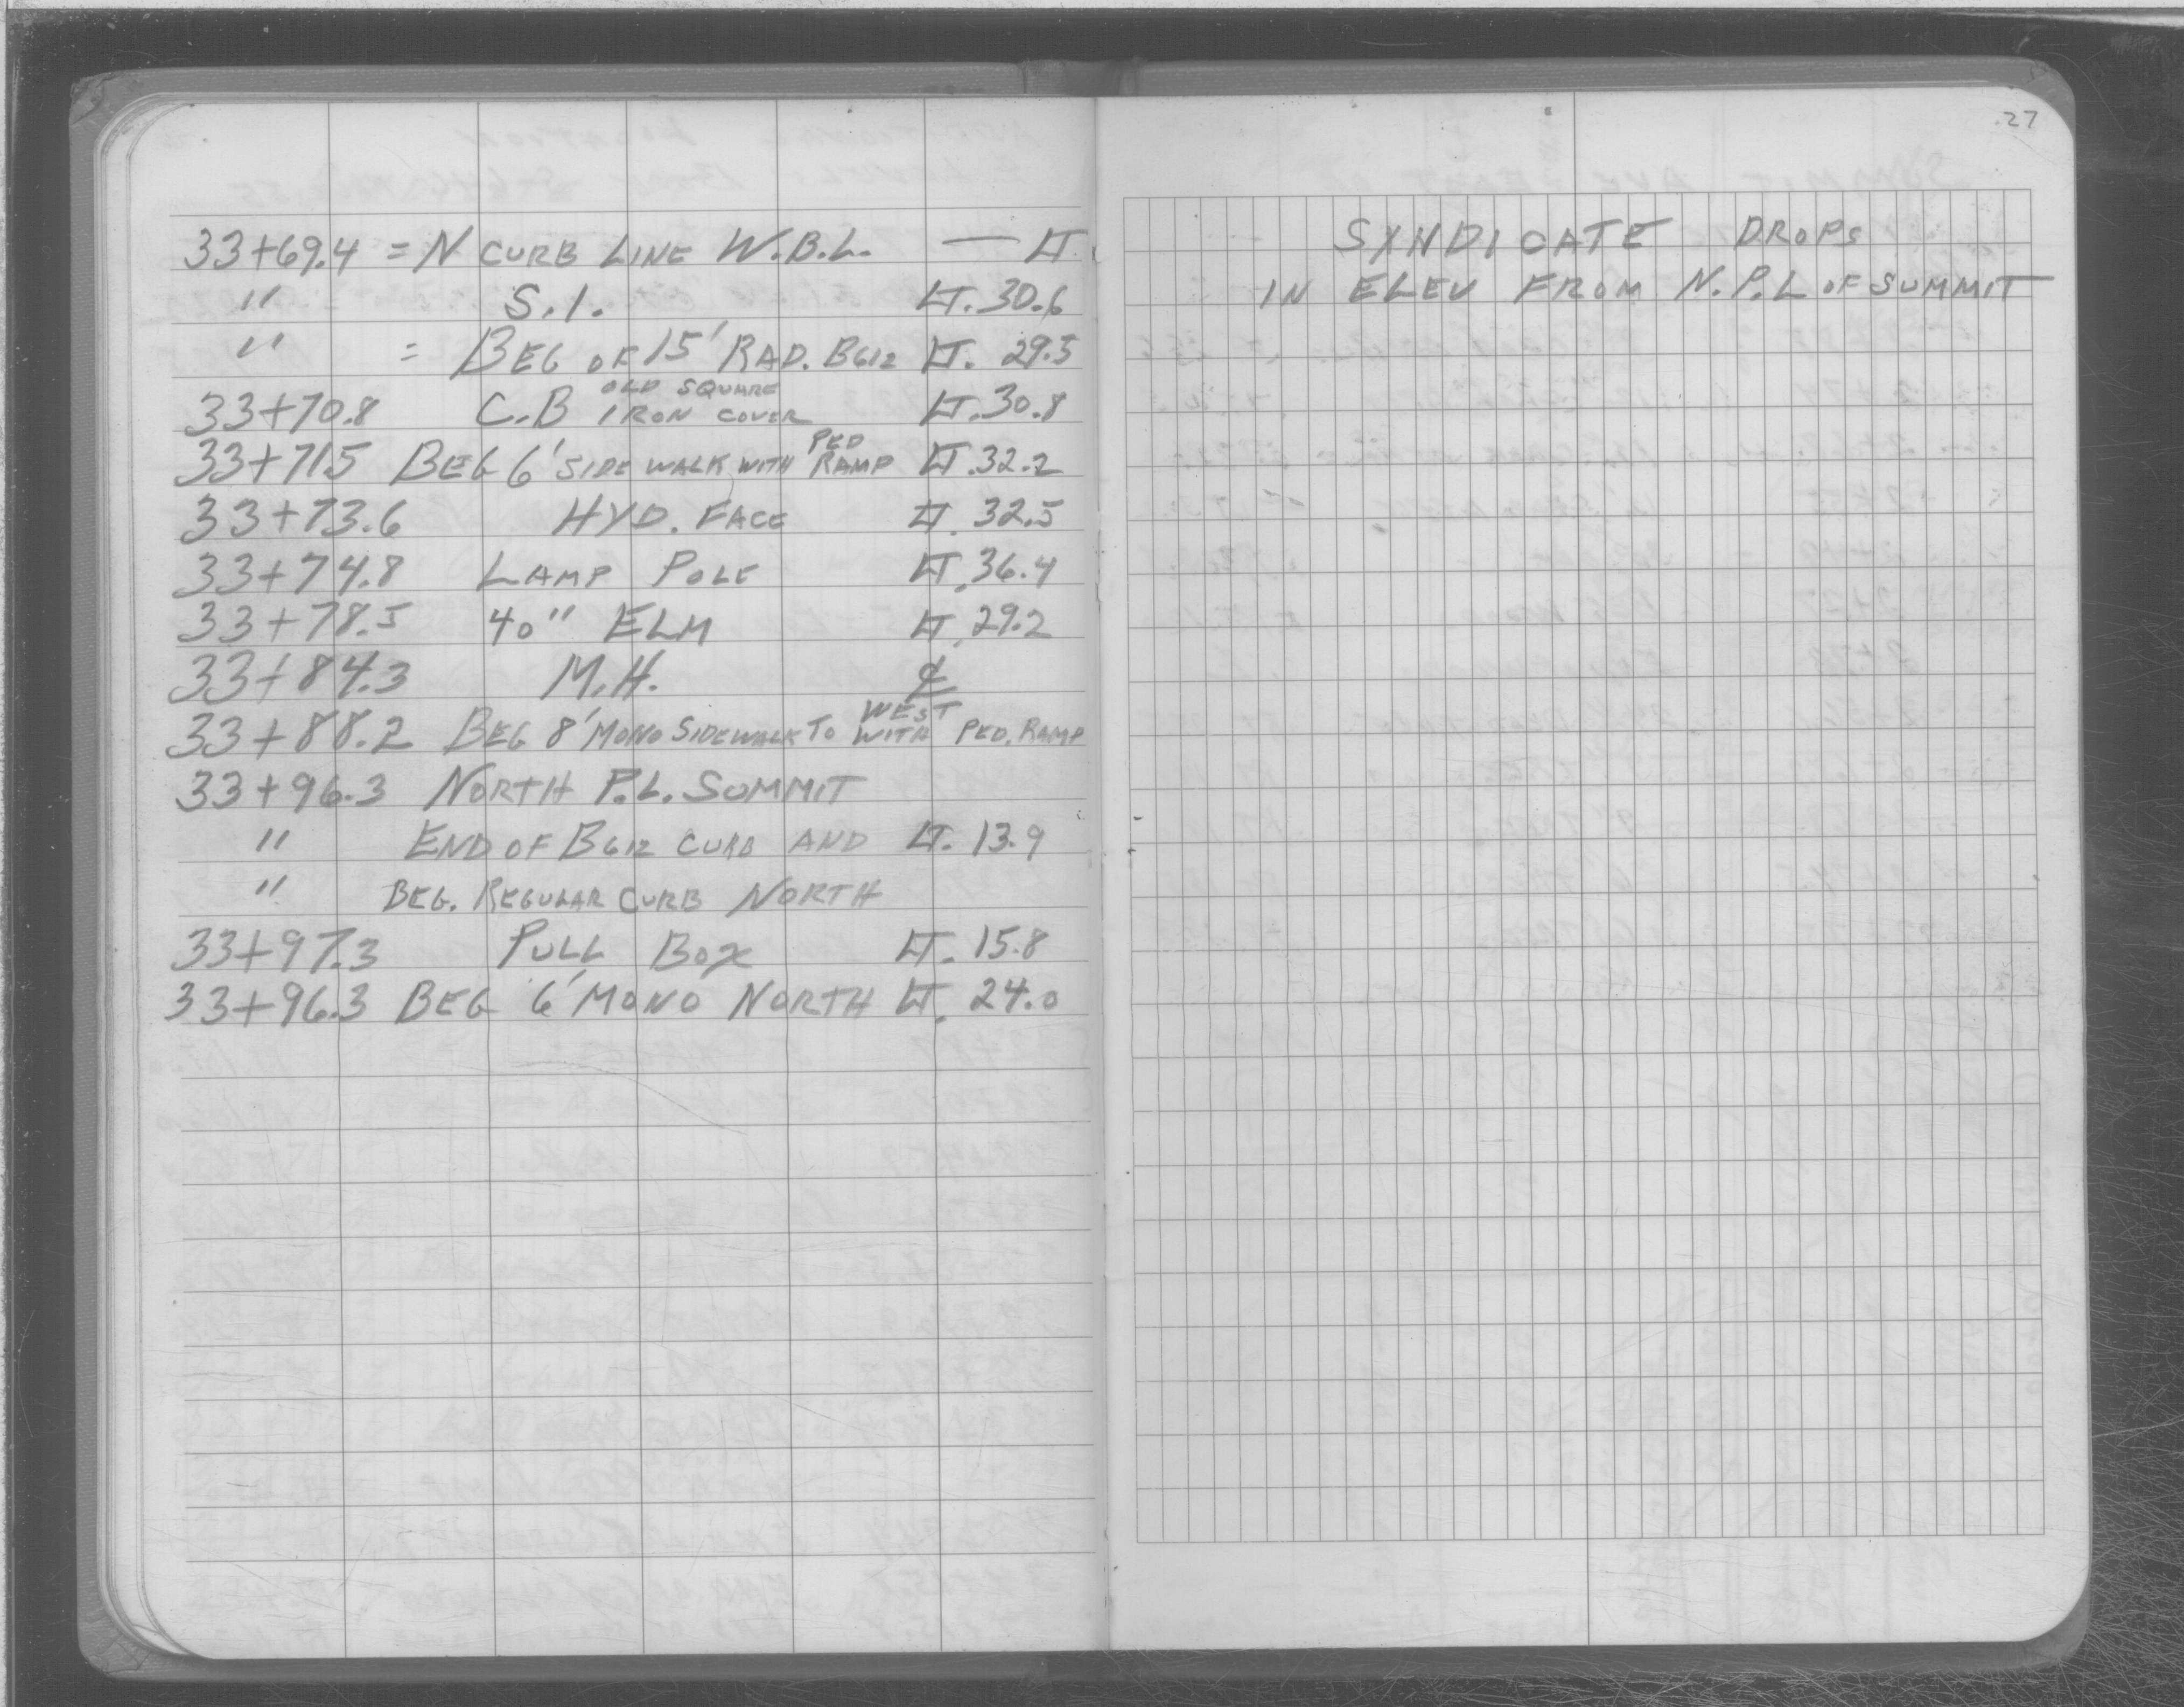 33+69.4 = N CURB LINE W.B.L. — LT.
" S.I. LT. 30.6
" = BEG OF 15' RAD. B612 LT. 29.5
OLD SQUARE
33+70.8 C.B IRON COVER LT. 30.8
PED
33+71.5 BEG 6' SIDE WALK WITH RAMP LT. 32.2
33+73.6 HYD. FACE LT. 32.5
33+74.8 LAMP POLE LT. 36.4
33+78.5 40" ELM LT. 29.2
33+84.3 M.H. ℄
WEST
33+88.2 BEG 8' MONO SIDEWALK TO WITH PED. RAMP
33+96.3 NORTH P.L. SUMMIT
" END OF B612 CURB AND LT. 13.9
" BEG. REGULAR CURB NORTH
33+97.3 PULL BOX LT. 15.8
33+96.3 BEG 6' MONO NORTH LT. 24.0
27
SYNDICATE DROPS
IN ELEV FROM N.P.L OF SUMMIT